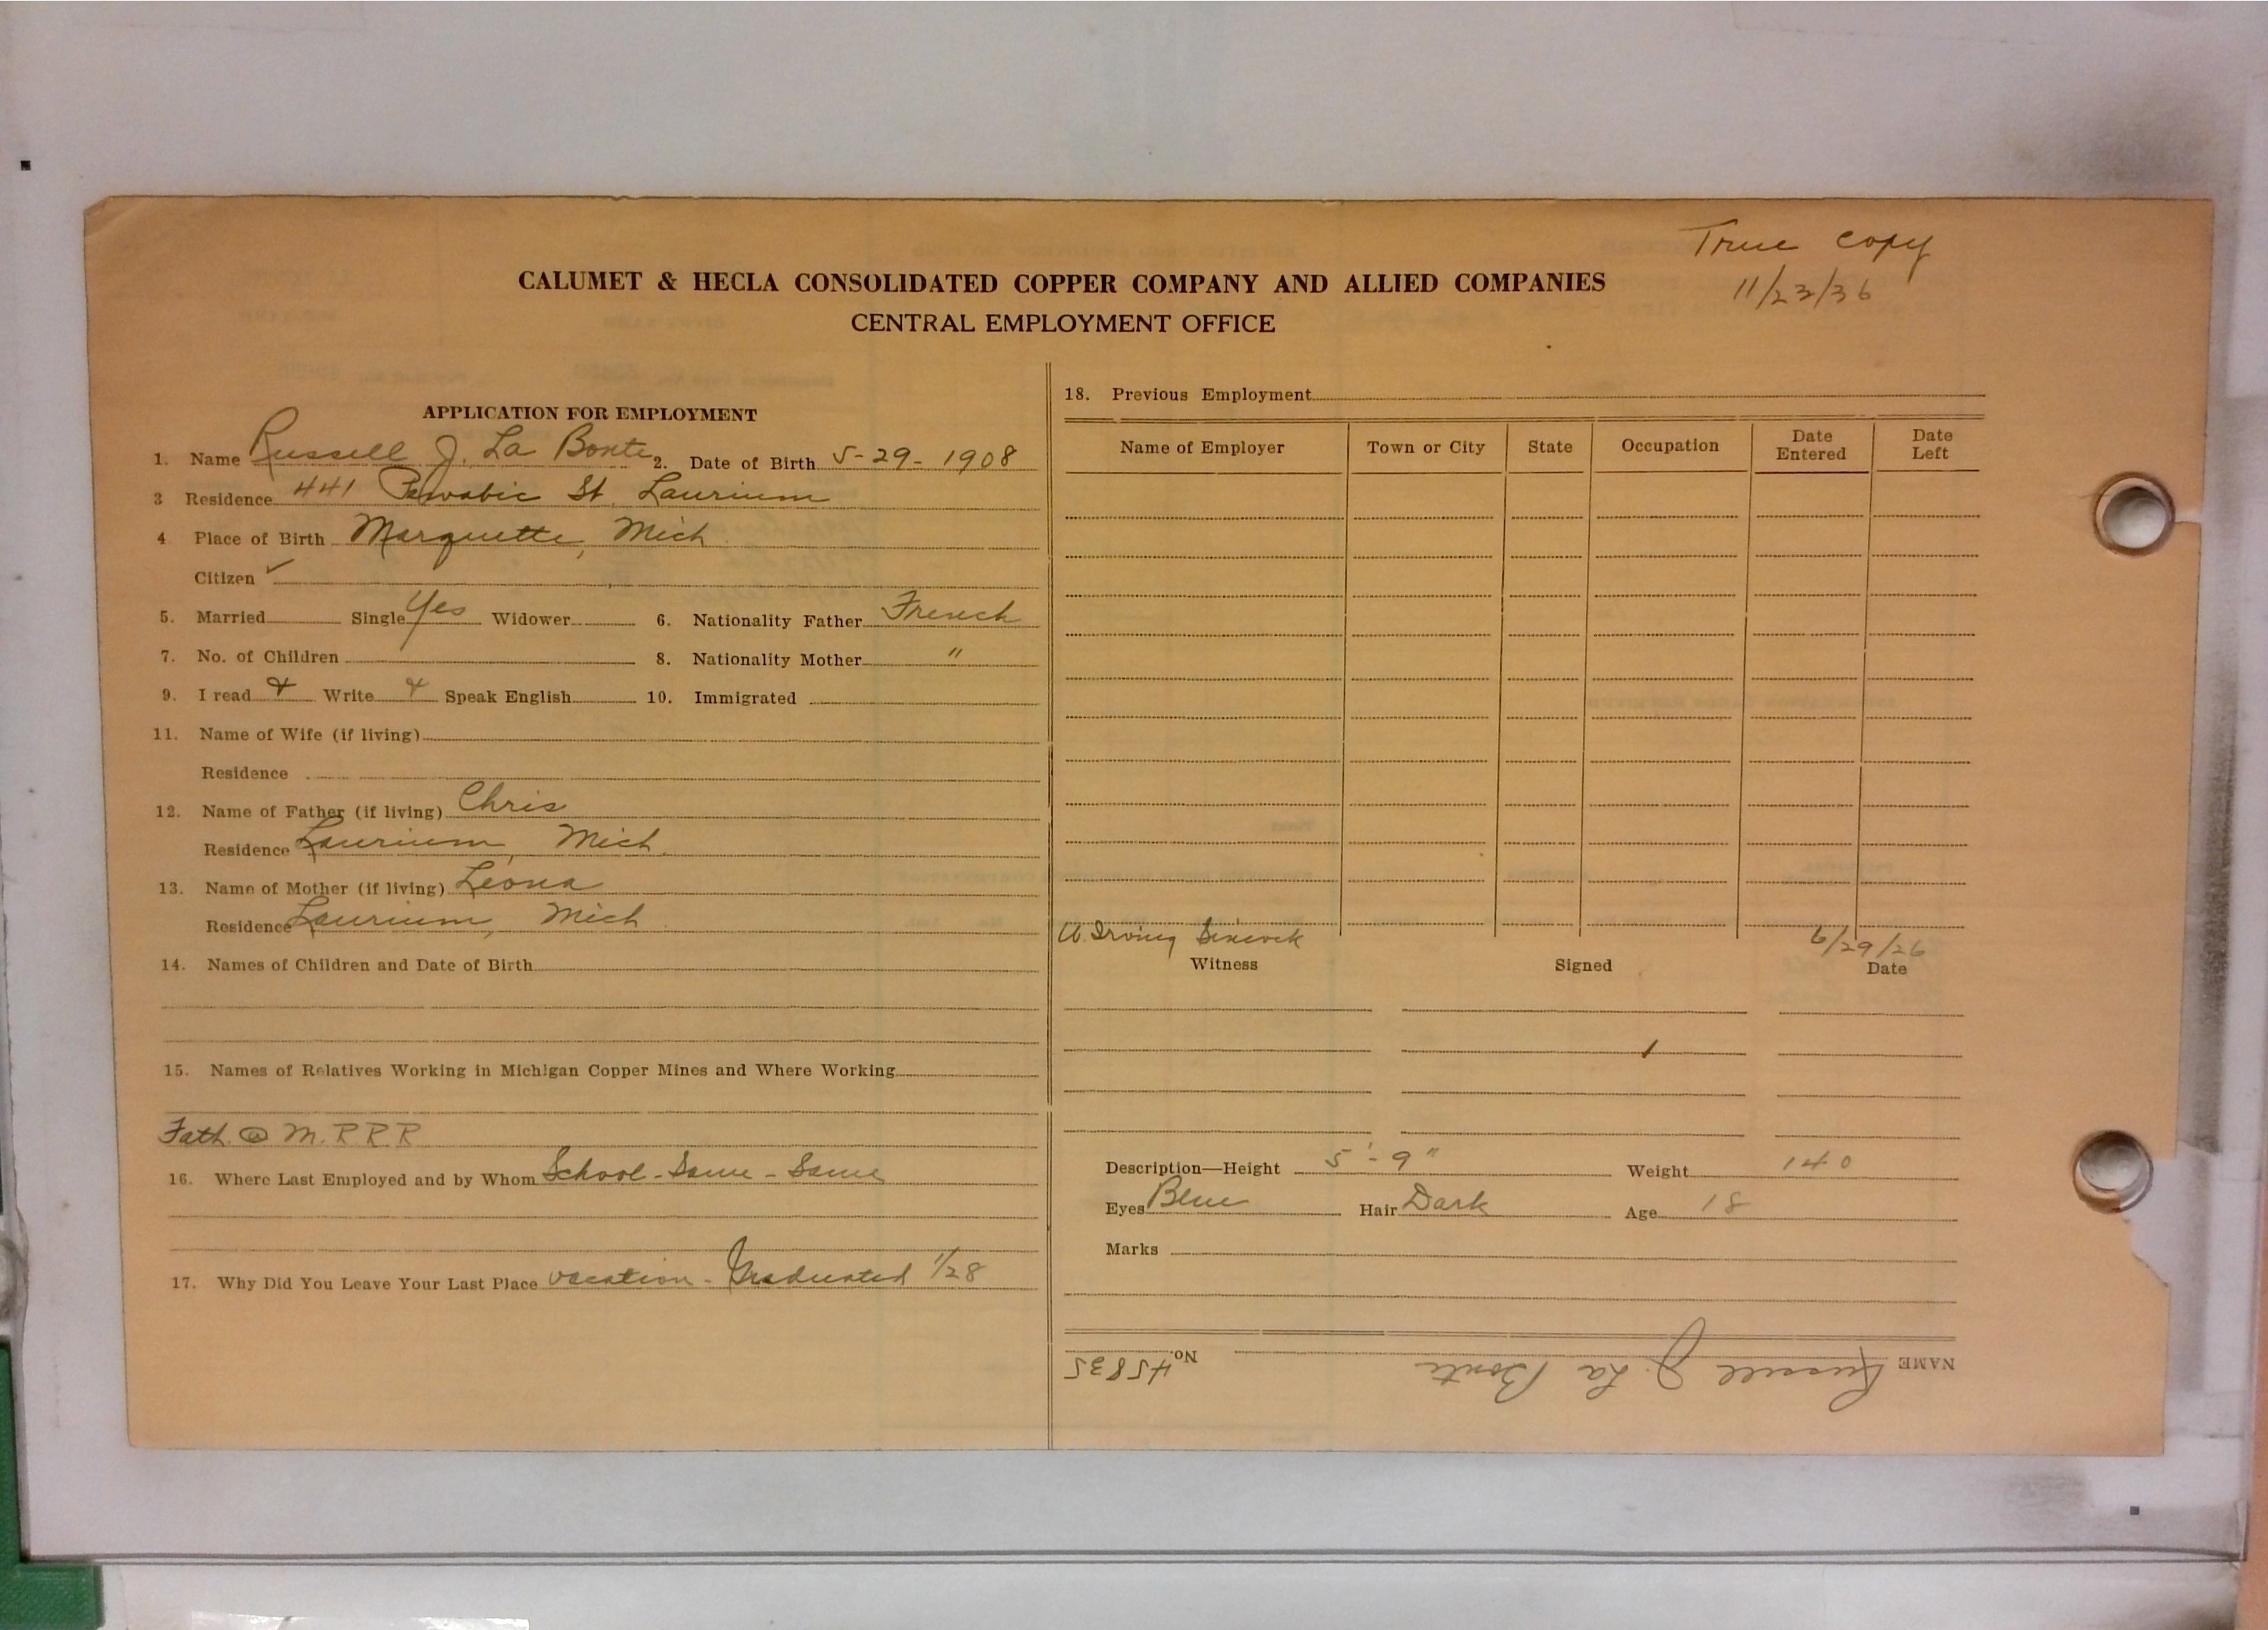 True copy
11/23/36
CALUMET & HECLA CONSOLIDATED COPPER COMPANY AND ALLIED COMPANIES
CENTRAL EMPLOYMENT OFFICE
APPLICATION FOR EMPLOYMENT
1. Name Russell J. La Bonte 2. Date of Birth 5-29-1908
3 Residence 441 Pewabic St. Laurium
4 Place of Birth Marquette, Mich
Citizen ✓
5. Married Single Yes Widower 6. Nationality Father French
7. No. of Children 8. Nationality Mother "
9. I read Write Speak English 10. Immigrated
11. Name of Wife (if living)
Residence
12. Name of Father (if living) Chris
Residence Laurium, Mich.
13. Name of Mother (if living) Leona
Residence Laurium, Mich
14. Names of Children and Date of Birth
15. Names of Relatives Working in Michigan Copper Mines and Where Working
Fath. @ M.R.R.R
16. Where Last Employed and by Whom School - Same - Same
17. Why Did You Leave Your Last Place vacation - Graduated 1/28
18. Previous Employment
Name of Employer Town or City State Occupation Date Entered Date Left
Irving 6/29/26
Witness Signed Date
Description—Height 5'-9" Weight 140
Eyes Blue Hair Dark Age 18
Marks
NAME Russell J. La Bonte No. 45835